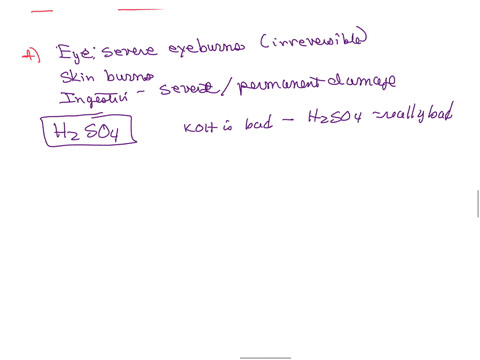 A) Eye: severe eye burns (irreversible)
Skin burns
Ingestion - severe / permanent damage
H2SO4 KOH is bad - H2SO4 = really bad